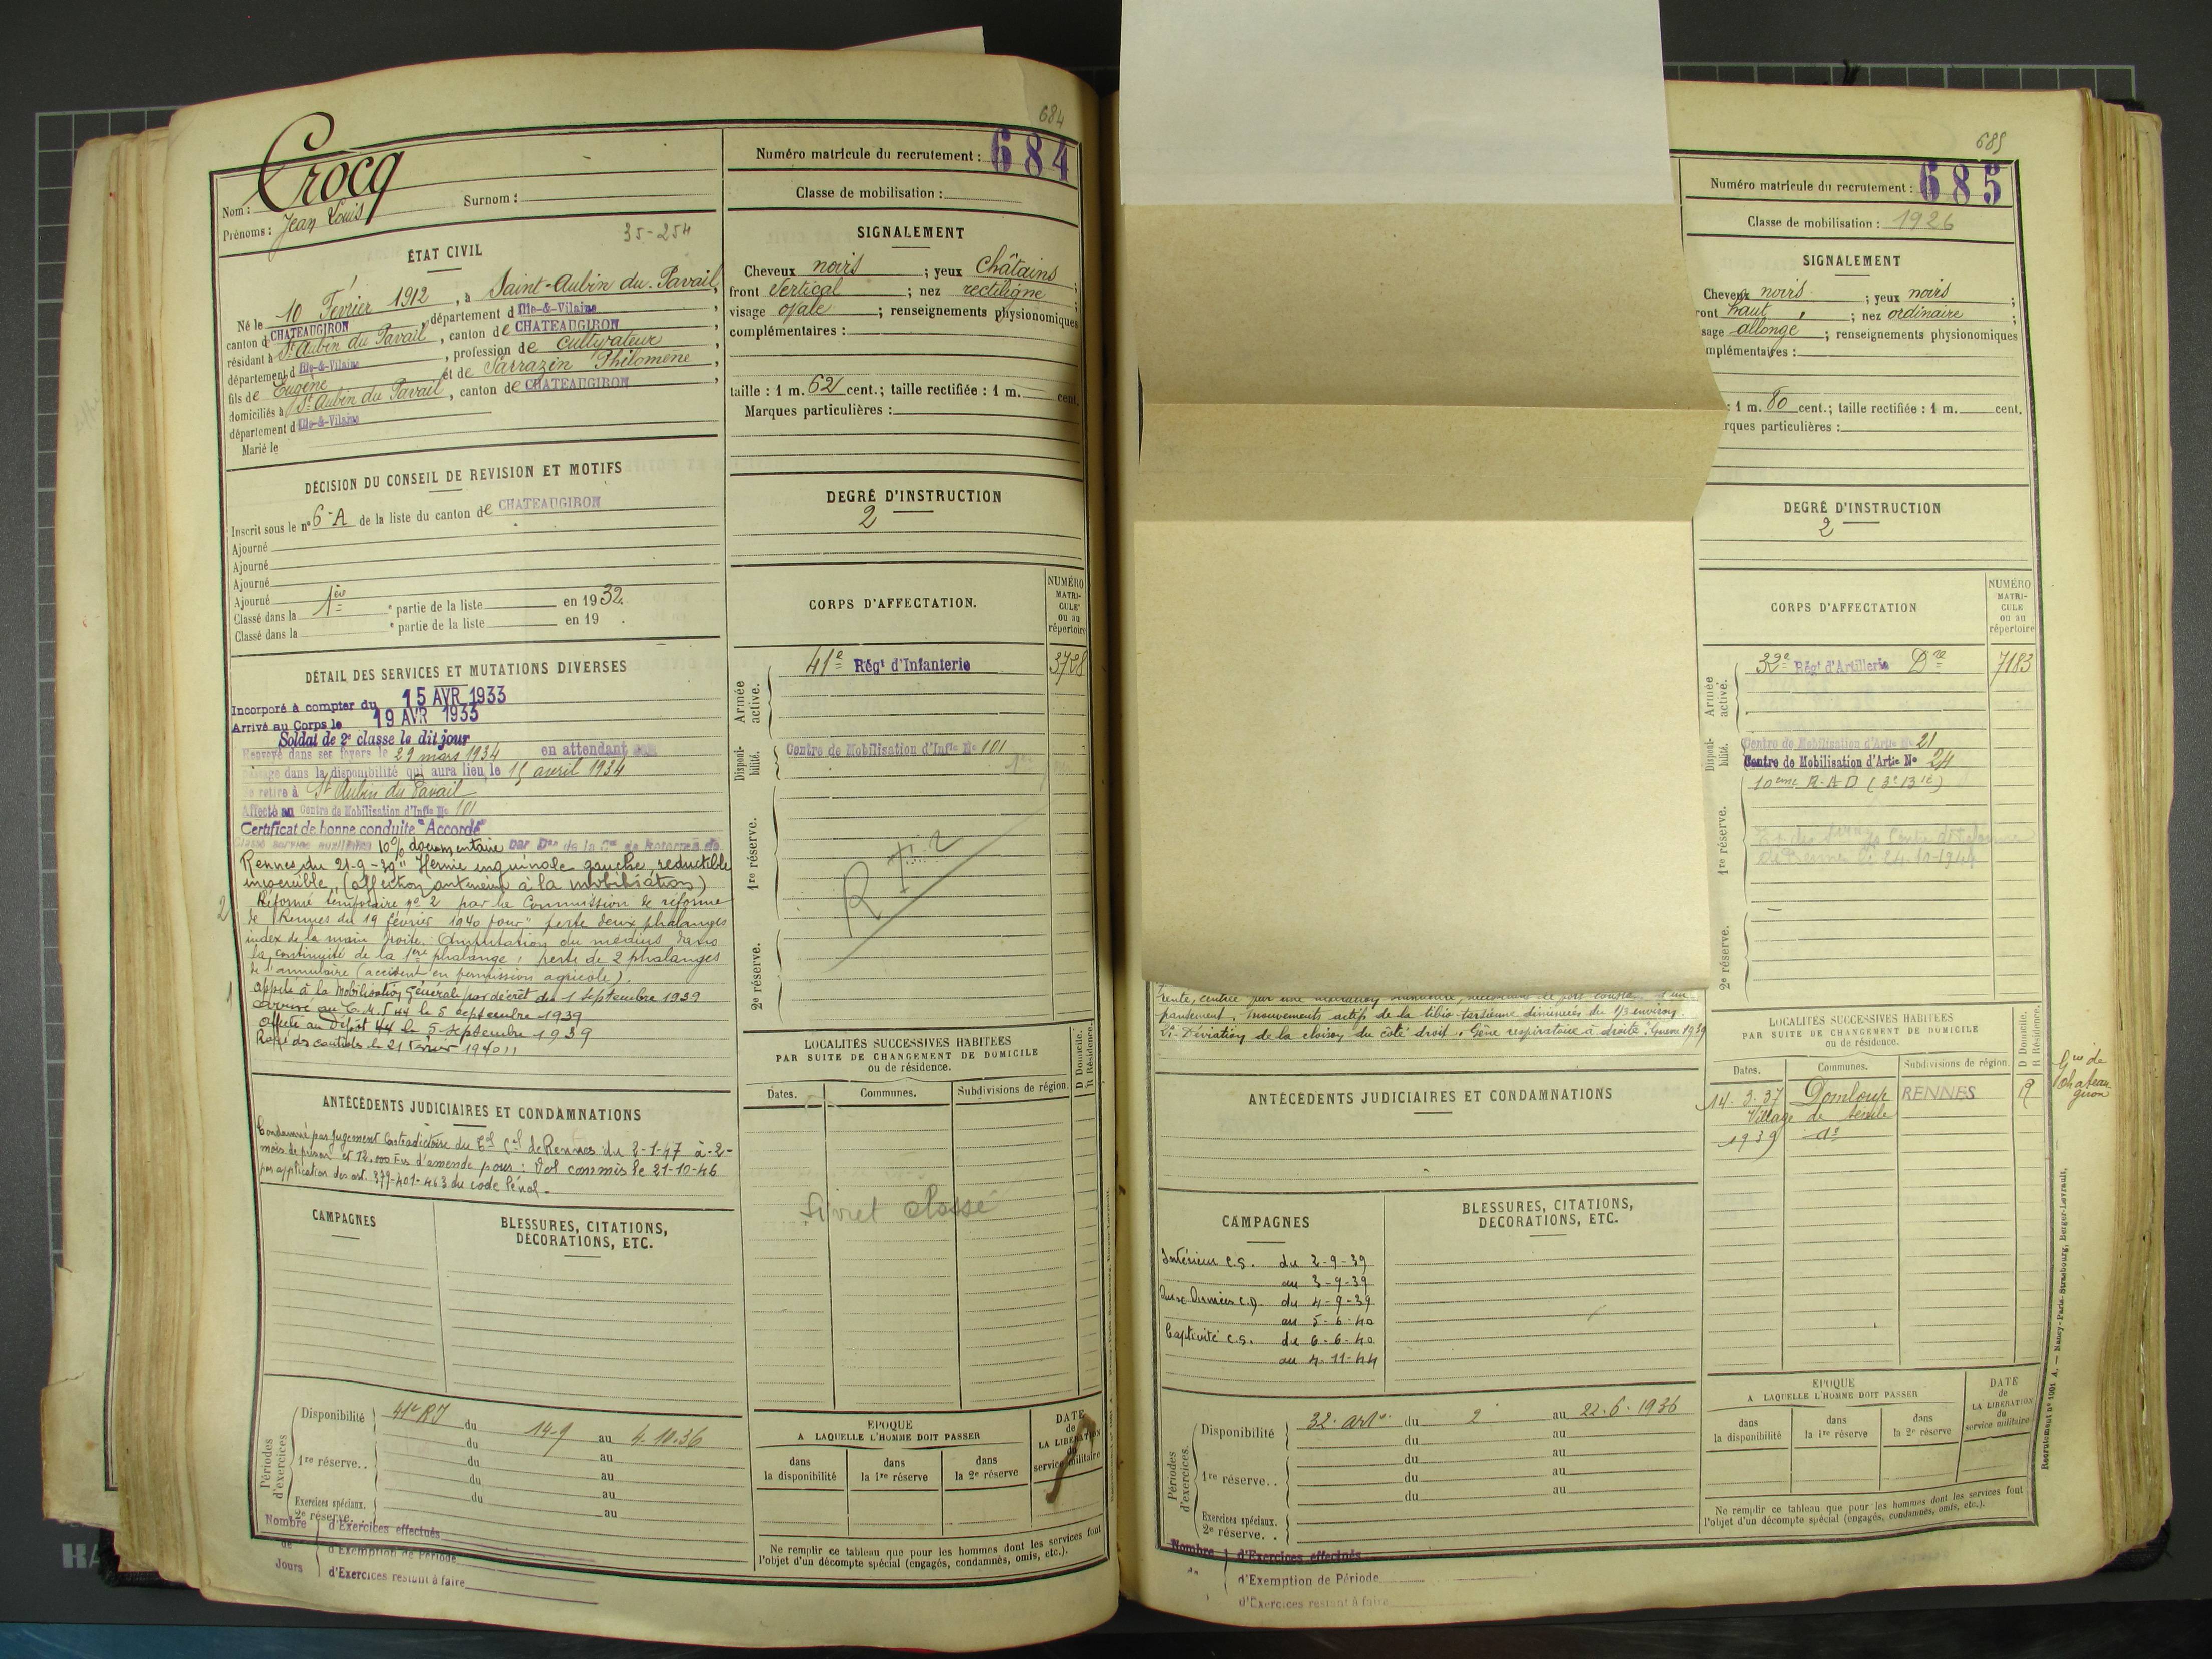 684
Crocq
Nom :
Surnom :
Prénoms : Jean Louis
35-254
ÉTAT CIVIL
Né le 10 Février 1912, à Saint-Aubin du Pavail,
canton de CHATEAUGIRON, département d Ille-&-Vilaine,
résidant à St Aubin du Pavail, canton de CHATEAUGIRON,
département d Ille-&-Vilaine, profession de cultivateur,
fils de Eugène et de Sarrazin Philomène,
domiciliés à St Aubin du Pavail, canton de CHATEAUGIRON,
département d Ille-&-Vilaine
Marié le
DÉCISION DU CONSEIL DE REVISION ET MOTIFS
Inscrit sous le n° 6-A de la liste du canton de CHATEAUGIRON
Ajourné
Ajourné
Ajourné
Ajourné
Classé dans la 1ère e partie de la liste en 1932.
Classé dans la e partie de la liste en 19 .
DÉTAIL DES SERVICES ET MUTATIONS DIVERSES
Incorporé à compter du 15 AVR 1933
Arrivé au Corps le 19 AVR 1933
Soldat de 2e classe le dit jour
Renvoyé dans ses foyers le 29 mars 1934 en attendant son
passage dans la disponibilité qui aura lieu le 15 avril 1934
Se retire à St Aubin du Pavail
Affecté au Centre de Mobilisation d'Infie No 101
Certificat de bonne conduite "Accordé"
Classé service auxiliaire 10% documentaire par Don de la Con de Réforme de
Rennes du 21-9-39 "Hernie inguinale gauche, réductible
(affection antérieure à la mobilisation)
2 Réformé temporaire no 2 par la Commission de réforme
de Rennes du 19 février 1940 pour "perte deux phalanges
index de la main droite. Amputation du médius dans
la continuité de la 1ère phalange ; perte de 2 phalanges
de l'annulaire (accident en permission agricole)
1 Appelé à la Mobilisation Générale par décret du 1 Septembre 1939
Arrivé au le 5 Septembre 1939
Affecté au Dépôt 44 le 5 septembre 1939
Rayé des contrôles le 21 Février 1940
ANTÉCÉDENTS JUDICIAIRES ET CONDAMNATIONS
Condamné par Jugement Contradictoire du Tal Cel de Rennes du 2-1-47 à -2-
mois de prison et 12.000 Frs d'amende pour : Vol commis le 21-10-46
par application des art. 379-401-463 du code Pénal.
CAMPAGNES
BLESSURES, CITATIONS,
DÉCORATIONS, ETC.
Périodes d'exercices
Disponibilité 41e RI du 14-9 au 4.10.36
du au
1re réserve.. du au
du au
Exercices spéciaux. du au
2e réserve.
Nombre de Jours
d'Exercices effectués
d'Exemption de Période
d'Exercices restant à faire
Numéro matricule du recrutement : 684
Classe de mobilisation :
SIGNALEMENT
Cheveux noirs ; yeux châtains ;
front vertical ; nez rectiligne ;
visage ovale ; renseignements physionomiques
complémentaires :
taille : 1 m. 62 cent. ; taille rectifiée : 1 m. cent.
Marques particulières :
DEGRÉ D'INSTRUCTION
2
CORPS D'AFFECTATION.
NUMÉRO
MATRI-
CULE
ou au
répertoire
Armée active.
41e Régt d'Infanterie 3728
Disponibilité.
Centre de Mobilisation d'Infie No 101
1re réserve.
2e réserve.
LOCALITÉS SUCCESSIVES HABITÉES
PAR SUITE DE CHANGEMENT DE DOMICILE
ou de résidence.
D Domicile.
R Résidence.
Dates. Communes. Subdivisions de région.
Livret classé
ÉPOQUE
A LAQUELLE L'HOMME DOIT PASSER
dans la disponibilité
dans la 1re réserve
dans la 2e réserve
DATE
de
LA LIBÉRATION
du
service militaire
Ne remplir ce tableau que pour les hommes dont les services font
l'objet d'un décompte spécial (engagés, condamnés, omis, etc.).
685
Numéro matricule du recrutement : 685
Classe de mobilisation : 1926
SIGNALEMENT
Cheveux noirs ; yeux noirs ;
ront haut ; nez ordinaire ;
sage allongé ; renseignements physionomiques
mplémentaires :
: 1 m. 80 cent. ; taille rectifiée : 1 m. cent.
rques particulières :
DEGRÉ D'INSTRUCTION
2
CORPS D'AFFECTATION
NUMÉRO
MATRI-
CULE
ou au
répertoire
Armée active.
32e Régt d'Artillerie Dre 7183
Disponibilité.
Centre de Mobilisation d'Artie No 21
Centre de Mobilisation d'Artie No 24
10ème R.A.D (3e Bie)
1re réserve.
de Rennes le 24-10-1944
2e réserve.
pansement. Mouvements actifs de la tibio-tarsienne diminués du 1/3 environ.
Déviation de la cloison du côté droit. Gêne respiratoire à droite. Guerre 1939
ANTÉCÉDENTS JUDICIAIRES ET CONDAMNATIONS
CAMPAGNES
BLESSURES, CITATIONS,
DÉCORATIONS, ETC.
Intérieur C.S. du 2-9-39
au 3-9-39
Aux Armées C.D. du 4-9-39
au 5-6-40
Captivité C.S. du 6-6-40
au 4-11-44
Périodes d'exercices.
Disponibilité 32e art du 2 au 22.6.1936
du au
du au
1re réserve.. du au
du au
Exercices spéciaux.
2e réserve. .
Nombre
d'Exercices effectués
d'Exemption de Période
d'Exercices restant à faire
LOCALITÉS SUCCESSIVES HABITÉES
PAR SUITE DE CHANGEMENT DE DOMICILE
ou de résidence.
D Domicile.
R Résidence.
Dates. Communes. Subdivisions de région.
14.3.37 Domloup RENNES R
Village de
1939 do
Gie de
Chateau
giron
ÉPOQUE
A LAQUELLE L'HOMME DOIT PASSER
dans la disponibilité
dans la 1re réserve
dans la 2e réserve
DATE
de
LA LIBÉRATION
du
service militaire
Ne remplir ce tableau que pour les hommes dont les services font
l'objet d'un décompte spécial (engagés, condamnés, omis, etc.).
Recrutement no 1001 A. — Nancy-Paris-Strasbourg, Berger-Levrault.